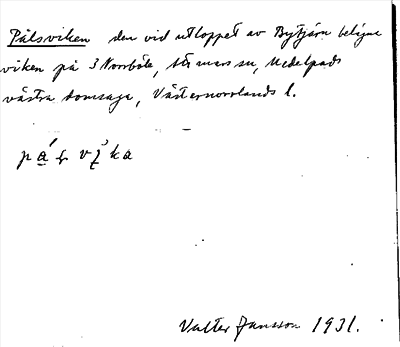 Pålsviken den vid utloppet av Bytjärn belägna
viken på 3 Norrböle, Stu mans sn, Medelpads
västra domsaga, Västernorrlands l.
Valter Jansson 1931.